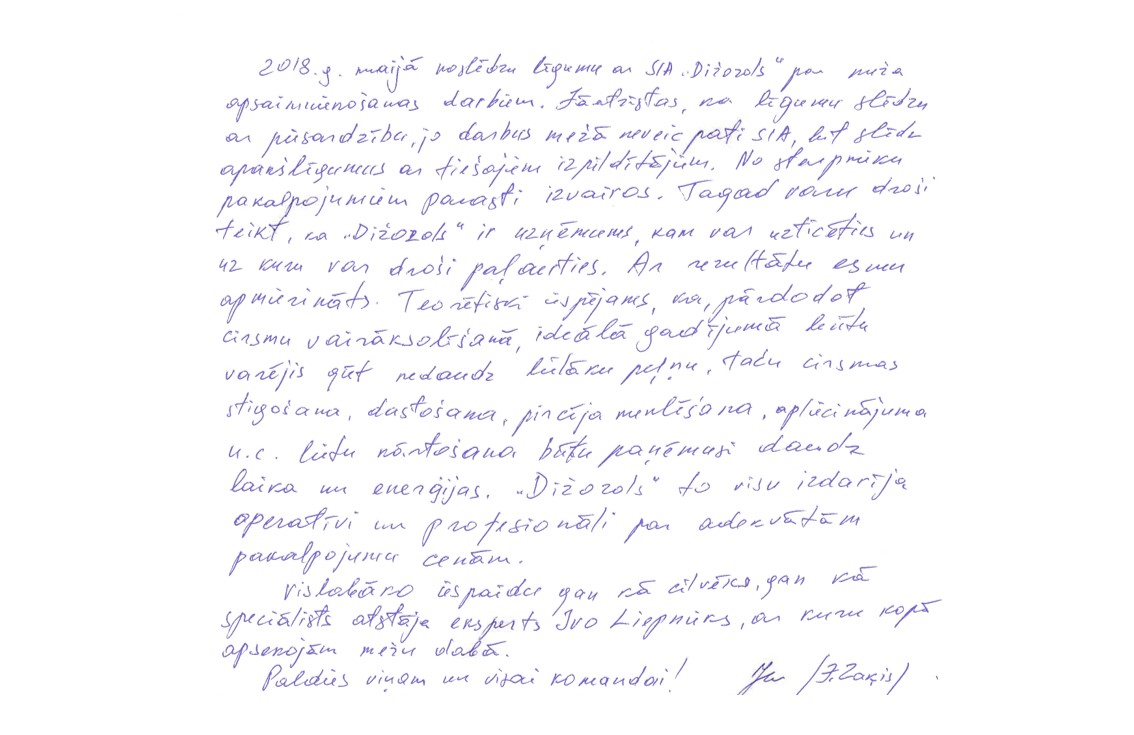 2018.g. maijā noslēdzu līgumu ar SIA „Dižozols“ par meža
apsaimniekošanas darbiem. Jāatzīstas, ka līgumu slēdzu
ar piesardzību, jo darbus mežā neveic pati SIA, bet slēdz
apakšlīgumus ar tiešajiem izpildītājiem. No starpnieku
pakalpojumiem parasti izvairos. Tagad varu droši
teikt, ka „Dižozols“ ir uzņēmums, kam var uzticēties un
uz kuru var droši paļauties. Ar rezultātu esmu
apmierināts. Teorētiski iespējams, ka, pārdodot
cirsmu vairāksolīšanā, ideālā gadījumā būtu
varējis gūt nedaudz lielāku peļņu, taču cirsmas
stigošana, dastošana, pircēja meklēšana, apliecinājuma
u.c. lietu kārtošana būtu paņēmusi daudz
laika un enerģijas. „Dižozols“ to visu izdarīja
operatīvi un profesionāli par adekvātām
pakalpojumu cenām.
Vislabāko iespaidu gan kā cilvēks, gan kā
speciālists atstāja eksperts Ivo Liepnieks, ar kuru kopā
apsekojām mežu dabā.
Paldies viņam un visai komandai! /J.Zaķis/